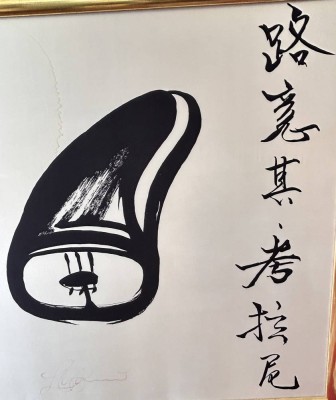 路意其·考拉尾